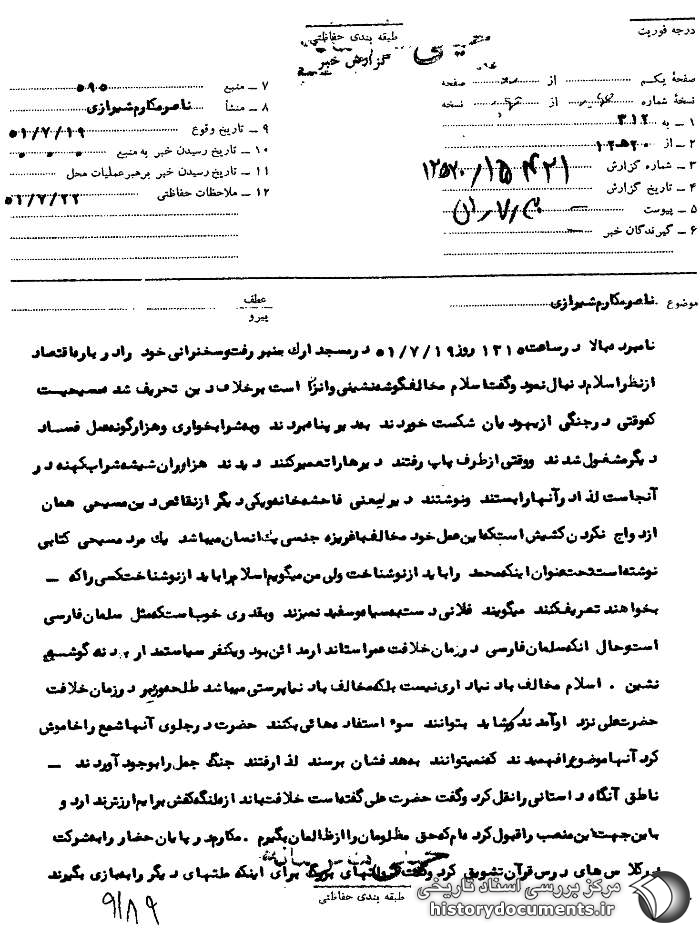 درجه فوریت
طبقه بندی حفاظتی
گزارش خبر
صفحهٔ یکم از صفحه
نسخهٔ شماره از نسخه
۱ ـ به ۳۱۲
۲ ـ از ۲۰ﻫ۱۲
۳ ـ شماره گزارش
۴ ـ تاریخ گزارش
۵ ـ پیوست
۶ ـ گیرندگان خبر
۷ ـ منبع ۵۹۵
۸ ـ منشأ ناصرمکارم شیرازی
۹ ـ تاریخ وقوع ۵۱/۷/۱۹
۱۰ ـ تاریخ رسیدن خبر به منبع
۱۱ ـ تاریخ رسیدن خبر برهبر عملیات محل
۱۲ ـ ملاحظات حفاظتی ۵۱/۷/۲۲
موضوع ناصرمکارم شیرازی
عطف
پیرو
نامبرده بالا در ساعت ۱۳۱۵ روز ۵۱/۷/۱۹ در مسجد ارك منبر رفت و سخنرانی خود را درباره اقتصاد
از نظر اسلام دنبال نمود و گفت اسلام مخالف گوشه نشینی و انزا است برخلاف دین تحریف شده مسیحیت
که وقتی در جنگی از یهودیان شکست خوردند بدیر پنابردند و به شرابخواری و هزارگونه عمل فساد
دیگر مشغول شدند و وقتی از طرف پاپ رفتند دیرها را تعمیر کنند دیدند هزاوران شیشه شراب کهنه در
آنجاست لذا درآنها را بستند ونوشتند دیر یعنی فاحشه خانه ویکی دیگر از نقائص دین مسیحی همان
ازدواج نکردن کشیش است که این عمل خود مخالف با غریزه جنسی یك انسان میباشد یك مرد مسیحی کتابی
نوشته است تحت عنوان اینکه محمد را باید از نو شناخت ولی من میگویم اسلام را باید از نو شناخت کسی را که ـ
بخواهند تعریف کنند میگویند فلانی دست به سیاه و سفید نمیزند و بقدری خوب است که مثل سلمان فارسی
است و حال آنکه سلمان فارسی در زمان خلافت عمر استاندار مدائن بود و یکنفر سیاستمدار بود نه گوشه
نشین . اسلام مخالف با دنیاداری نیست بلکه مخالف با دنیا پرستی میباشد طلحه و زبیر در زمان خلافت
حضرت علی نزد او آمدند که شاید بتوانند سوء استفاده هائی بکنند حضرت در جلوی آنها شمع را خاموش
کرد آنها موضوع را فهمیدند که نمیتوانند به هدفشان برسند لذا رفتند جنگ جمل را بوجود آوردند ـ
ناطق آنگاه داستانی را نقل کرد و گفت حضرت علی گفته است خلافت باندازه لنگه کفش برایم ارزش ندارد و
باین جهت این منصب را قبول کرده ام که حق مظلومان را از ظالمان بگیرم . مکارم در پایان حضار را به شرکت
در کلاس های درس قرآن تشویق کرد وگفت قرآنهای بزرگ برای اینکه ملتهای دیگر را به بازی بگیرند
طبقه بندی حفاظتی
۹/۸۹
مرکز بررسی اسناد تاریخی
historydocuments.ir